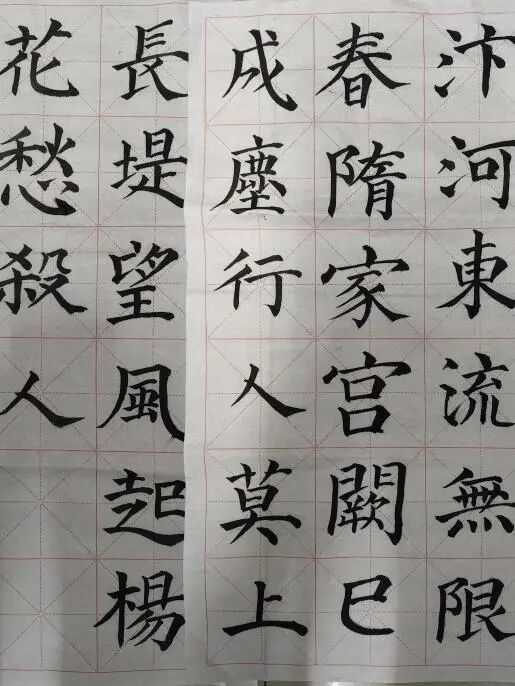 汴河東流無限
春隋家宮闕已
成塵行人莫上
長堤望風起楊
花愁殺人